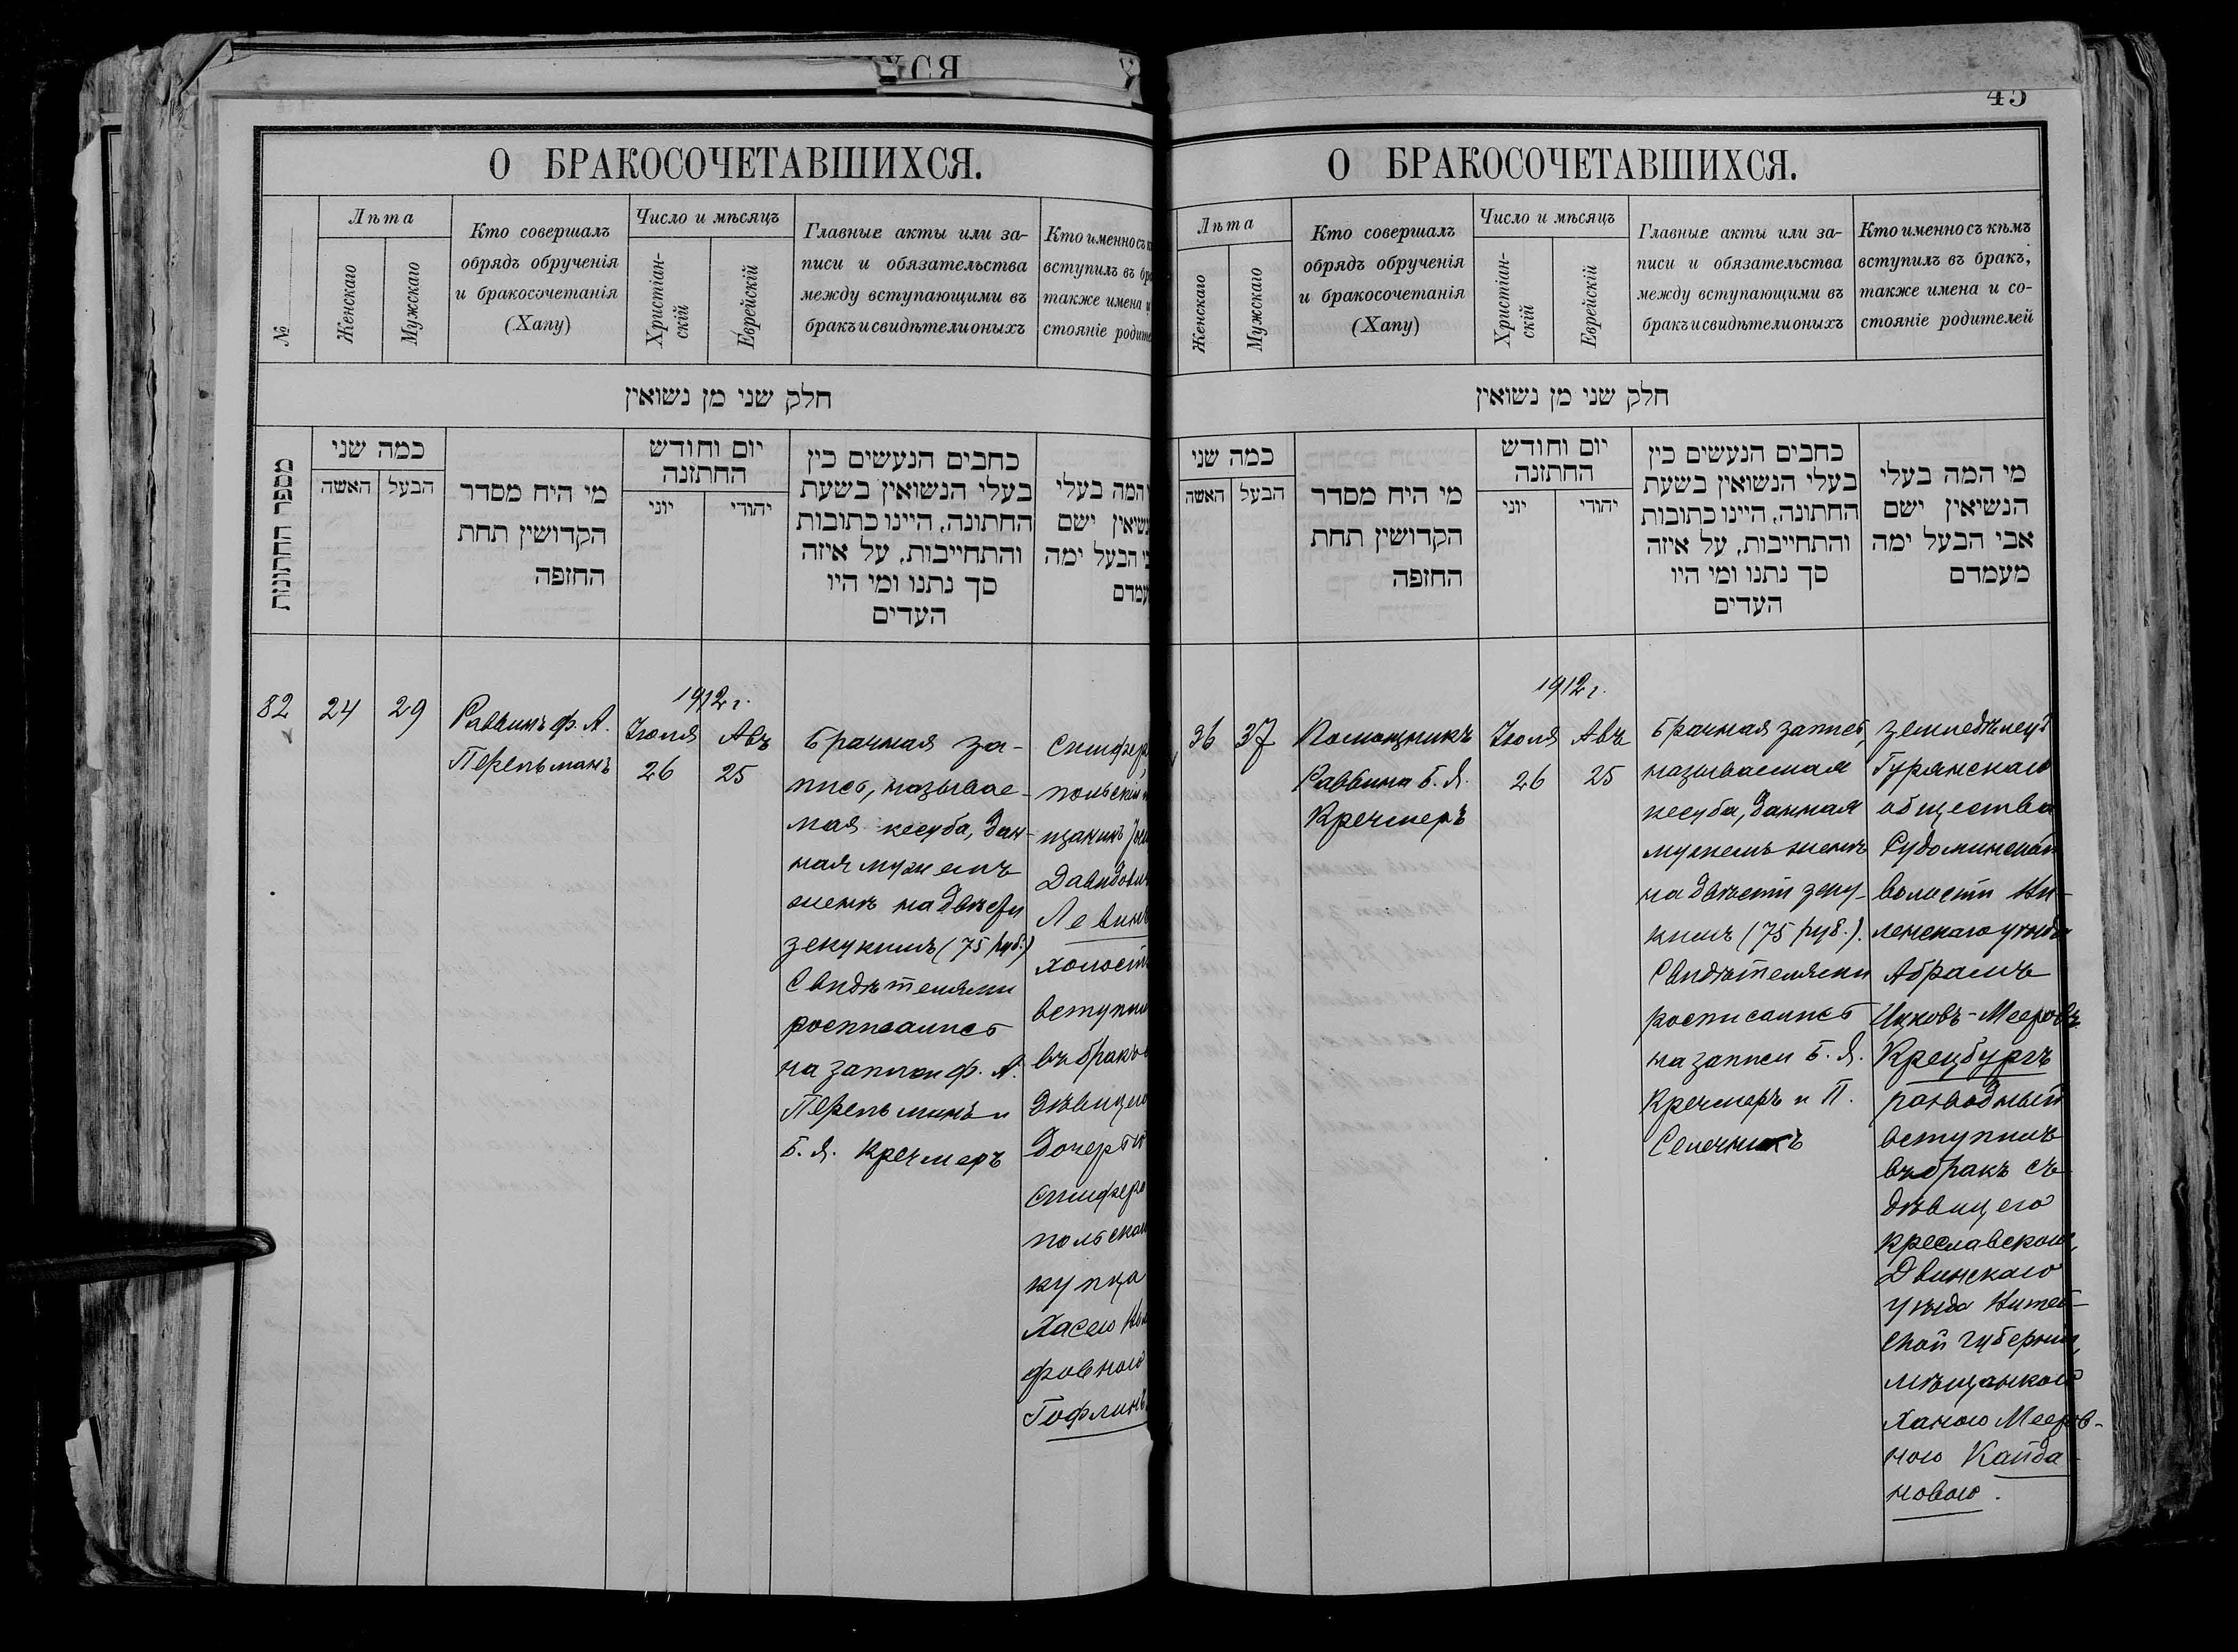 45
О БРАКОСОЧЕТАВШИХСЯ.
№
Лѣта
Женскаго
Мужскаго
Кто совершалъ
обрядъ обрученія
и бракосочетанія
(Хапу)
Число и мѣсяцъ
Христіан-
скій
Еврейскій
Главные акты или за-
писи и обязательства
между вступающими въ
бракъ и свидѣтели оныхъ
Кто именно съ
вступилъ въ
также имена и
стояніе
חלק שני מן נשואין
מספר החתונות
כמה שני
האשה הבעל
מי היח מסדר
הקדושין תחת
החופה
יום וחודש
החתונה
יוני יהודי
כחבים הנעשים כין
בעלי הנשואין בשעת
החתונה, היינו כתובות
והתחייבות, על איזה
סך נתנו ומי היו
העדים
המה בעלי
ישם
הבעל ימה
82
24
29
Раввинъ Ф. А.
Перельманъ
1912 г.
Іюля Авъ
26 25
Брачная за-
пись, называе-
мая кесуба, дан-
ная мужемъ
женѣ на двѣсти
зекукимъ (75 руб.)
Свидѣтелями
росписались
на записи Ф. А.
Перельманъ и
Б. Я. Кречмеръ
Давидович
холость
вступил
въ бракъ
дѣвицею
дочерью
Симферо
польскаго
купца
Хасею
фовною
Гофлинъ
О БРАКОСОЧЕТАВШИХСЯ.
Лѣта
Женскаго
Мужскаго
Кто совершалъ
обрядъ обрученія
и бракосочетанія
(Хапу)
Число и мѣсяцъ
Христіан-
скій
Еврейскій
Главные акты или за-
писи и обязательства
между вступающими въ
бракъ и свидѣтели оныхъ
Кто именно съ кѣмъ
вступилъ въ бракъ,
также имена и со-
стояніе родителей
חלק שני מן נשואין
כמה שני
האשה הבעל
מי היח מסדר
הקדושין תחת
החופה
יום וחודש
החתונה
יוני יהודי
כחבים הנעשים כין
בעלי הנשואין בשעת
החתונה, היינו כתובות
והתחייבות, על איזה
סך נתנו ומי היו
העדים
מי המה בעלי
הנשיאין ישם
אבי הבעל ימה
מעמדם
36
37
Помощникъ
Раввина Б. Я.
Кречмеръ
1912 г.
Іюля Авъ
26 25
Брачная запись,
называемая
кесуба, данная
мужемъ женѣ
на двѣсти зеку-
кимъ (75 руб.).
Свидѣтелями
росписались
на записи Б. Я.
Кречмеръ и П.
Селечникъ
земледѣлецъ
Гурянскаго
общества
Рудоминской
волости Ви-
ленскаго уѣзда
Абрамъ
Ицковъ-Мееровъ
Крецбургъ
разводный
вступилъ
въ бракъ съ
дѣвицею
Креславскою,
Двинскаго
уѣзда Витеб-
ской губерніи,
мѣщанкою
Ханою Мееров-
ною Кайда-
новою.